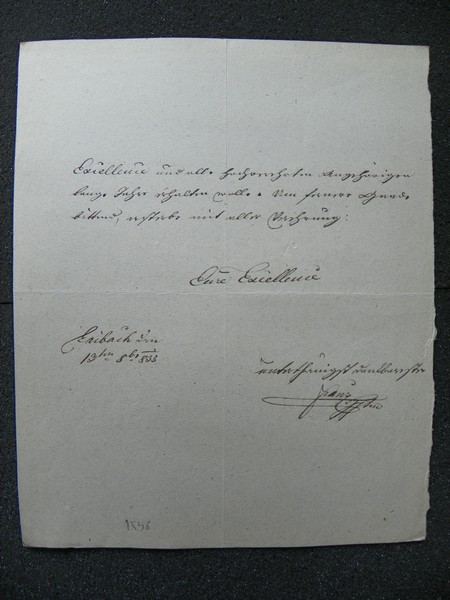 Excellence und alle hochverehrten Angehörigen
lange Jahre erhalten wolle. Um fernere Gnade
bittend, ersterbe mit aller Verehrung:
Eure Excellence
Laibach den
13ten 8br 838
unterthänigst dankbarster
Franz
1838